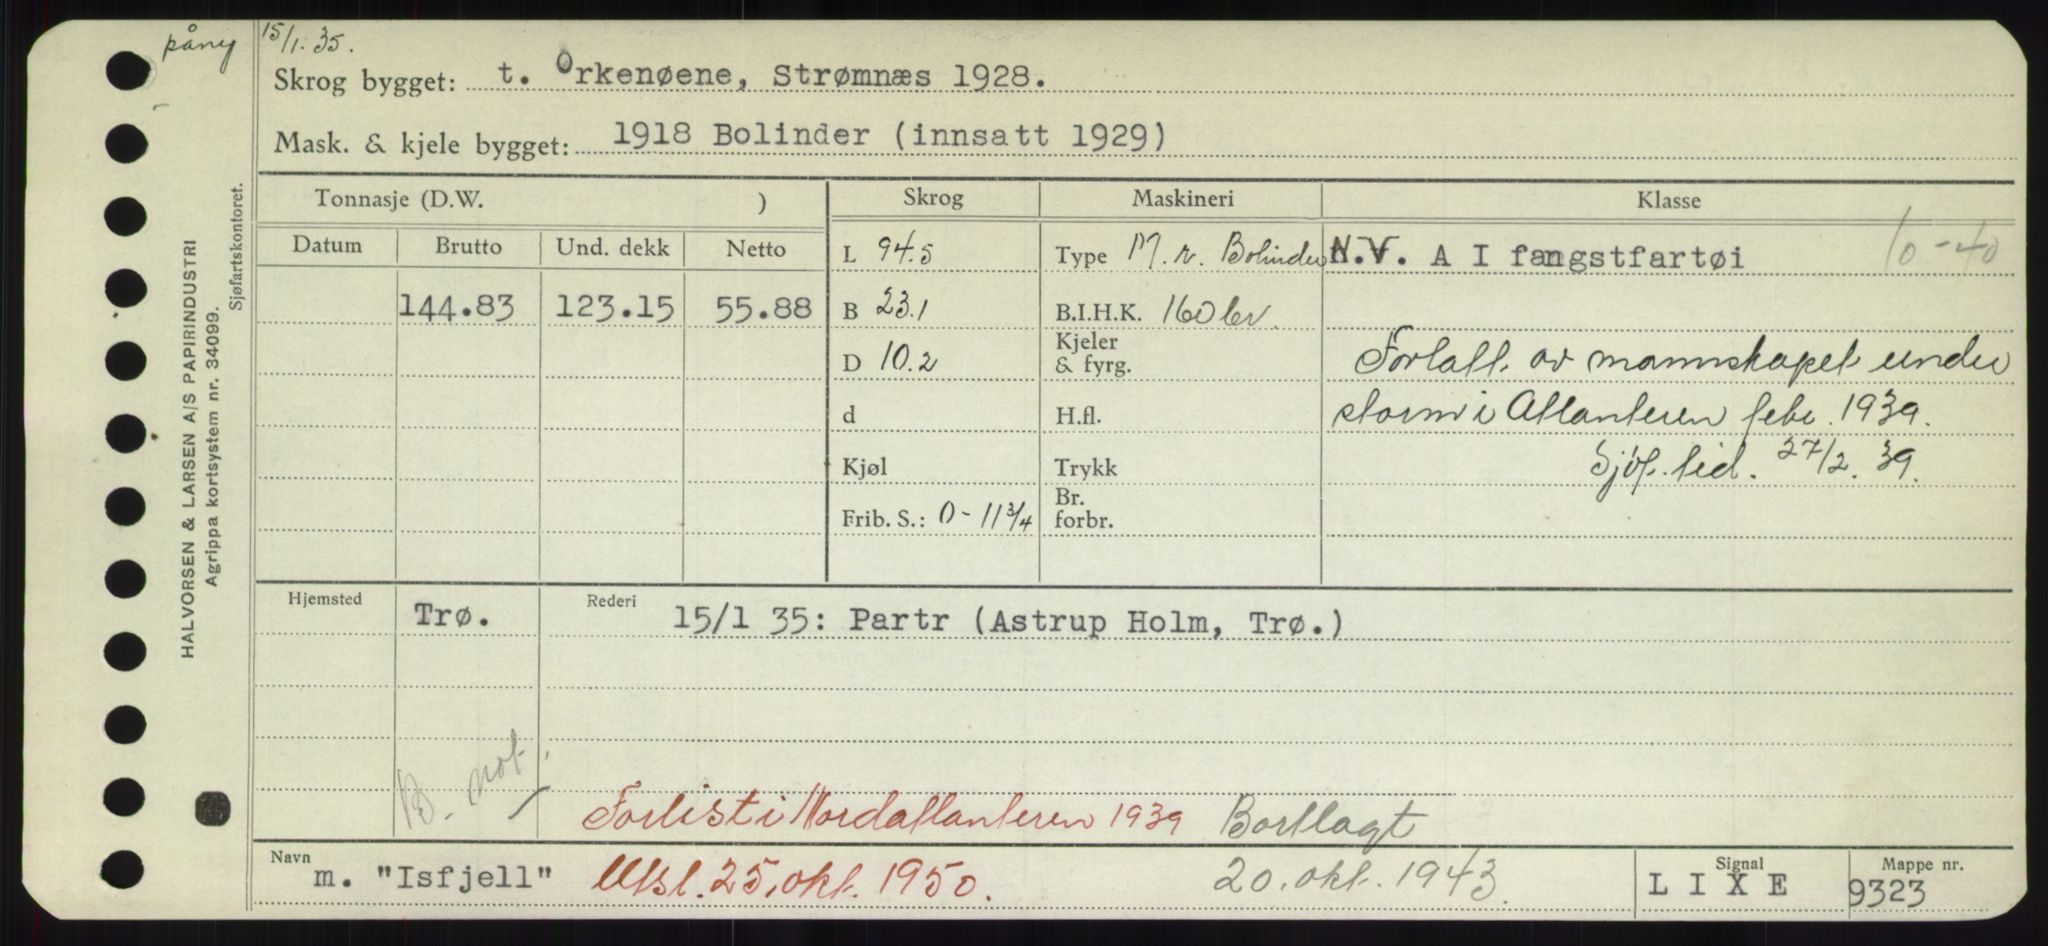 påny 15/1.35.
Skrog bygget: t. Orkenøene, Strømnæs 1928.
Mask. & kjele bygget: 1918 Bolinder (innsatt 1929)
HALVORSEN & LARSEN A/S PAPIRINDUSTRI
Agrippa kortsystem nr. 34099.
Sjøfartskontoret.
Tonnasje (D.W. ) Skrog Maskineri Klasse
Datum Brutto Und. dekk Netto
L 94.5 Type M. v. Bolinder N.V. A I fangstfartøi 10-40
144.83 123.15 55.88 B 23.1 B.I.H.K. 160 bv.
D 10.2 Kjeler & fyrg. Forlatt av mannskapet under
d H.fl. storm i Atlanteren febr. 1939.
Kjøl Trykk Sjøf. tid. 27/2. 39.
Frib. S.: 0 - 11 3/4 Br. forbr.
Hjemsted Trø. Rederi 15/1 35: Partr (Astrup Holm, Trø.)
B. not.
Forlist i Nordatlanteren 1939 Bortlagt
Navn m. "Isfjell" Utsl. 25. okt. 1950. 20. okt. 1943. Signal L I X E Mappe nr. 9323